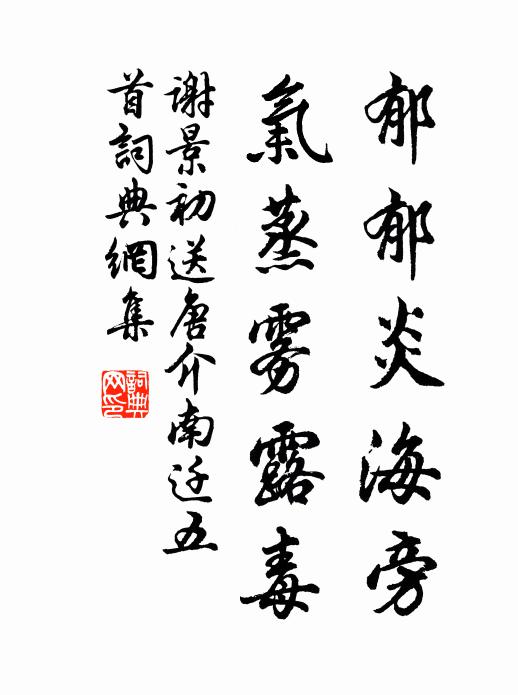 郁郁炎海旁
氣蒸雾露毒
谢景初送唐介南迁五
首詞典網集
詞典
网印